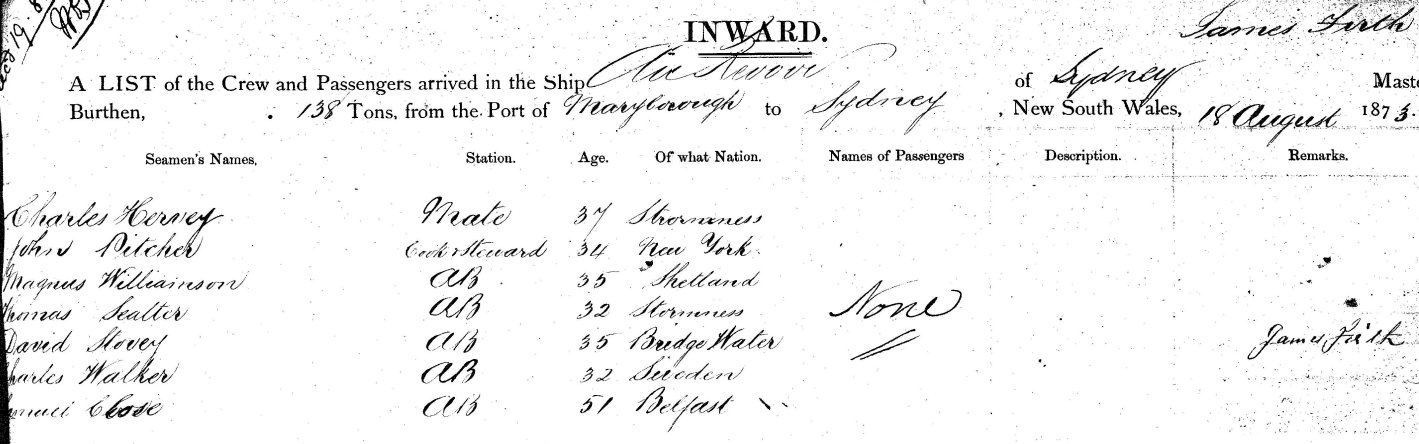 19.8
INWARD.
James Firth
A LIST of the Crew and Passengers arrived in the Ship of Sydney Maste
Burthen, 138 Tons, from the Port of Maryborough to Sydney, New South Wales, 18 August 1873.
Seamen's Names, Station. Age. Of what Nation. Names of Passengers Description. Remarks.
Charles Hervey Mate 37 Stromness
John Pitcher Cook & Steward 34 New York.
Magnus Williainson AB 35 Shetland
Thomas Seatter AB 32 Stormness None
David Stovey AB 35 Bridge Water James Firth
Charles Walker AB 32 Sweden
Close AB 51 Belfast